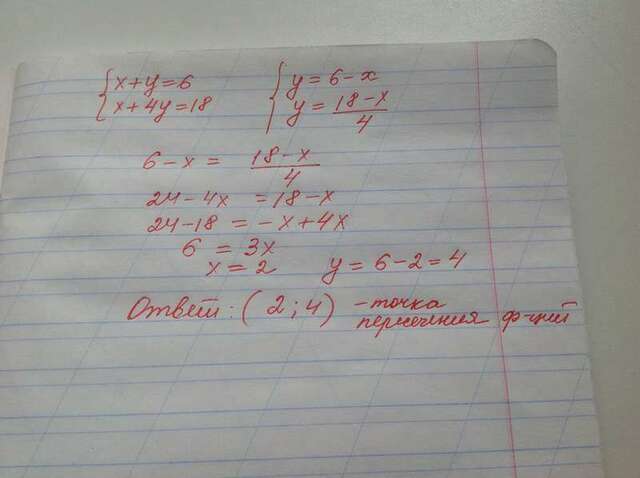 { x+y=6 { y=6-x
x+4y=18 y= 18-x/4
6-x = 18-x/4
24-4x = 18-x
24-18 = -x+4x
6 = 3x
x=2 y=6-2=4
Ответ: (2;4) -точка
пересечения ф-ций